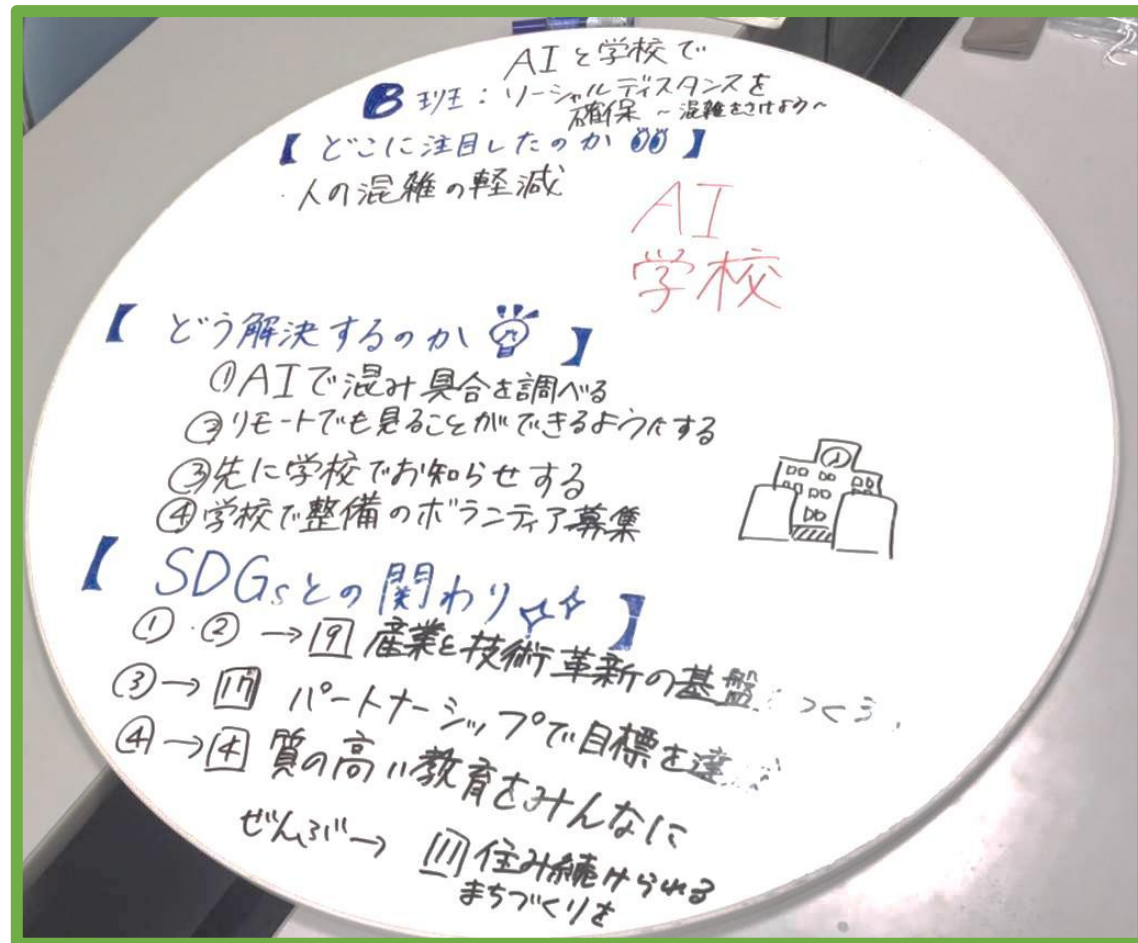 AIと学校で
B班：ソーシャルディスタンスを
確保 ～混雑をさけよう～
【どこに注目したのか】
・人の混雑の軽減
AI
学校
【どう解決するのか】
①AIで混み具合を調べる
②リモートでも見ることができるようにする
③先に学校でお知らせする
④学校で整備のボランティア募集
【SDGsとの関わり】
①・②→9 産業と技術革新の基盤をつくろう
③→17 パートナーシップで目標を達
④→4 質の高い教育をみんなに
ぜんぶ→ 11 住み続けられる
まちづくりを